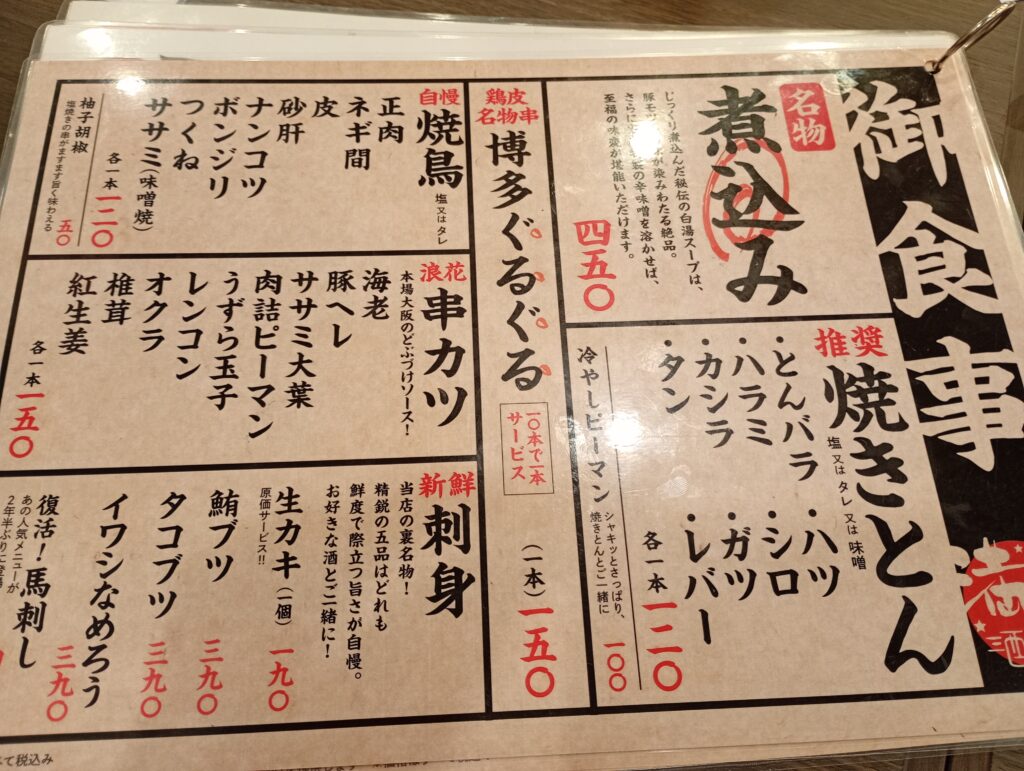 御食事
名物
煮込み
じっくり煮込んだ秘伝の白湯スープは、
豚モツ
が染みわたる絶品。
さらに
製の辛味噌を溶かせば、
至福の味変が堪能いただけます。
四五〇
推奨
焼きとん
塩又はタレ又は味噌
・とんバラ
・ハラミ
・カシラ
・タン
・ハツ
・シロ
・ガツ
・レバー
各一本 一二〇
冷やしピーマン
シャキッとさっぱり、
焼きとんとご一緒に
一〇〇
鶏皮
名物串
博多ぐるぐる
一〇本で一本
サービス
(一本) 一五〇
自慢
焼鳥
塩又はタレ
正肉
ネギ間
皮
砂肝
ナンコツ
ボンジリ
つくね
ササミ(味噌焼)
各一本 一二〇
柚子胡椒
塩焼きの串がますます旨く味わえる
五〇
浪花
串カツ
本場大阪のどぶづけソース!
海老
豚ヘレ
ササミ大葉
肉詰ピーマン
うずら玉子
レンコン
オクラ
椎茸
紅生姜
各一本 一五〇
新鮮
刺身
当店の裏名物!
精鋭の五品はどれも
鮮度で際立つ旨さが自慢。
お好きな酒とご一緒に!
生カキ(一個) 一九〇
原価サービス!!
鮪ブツ 三九〇
タコブツ 三九〇
イワシなめろう 三九〇
復活!馬刺し
あの人気メニューが
2年半ぶりに登場
て税込み
酒